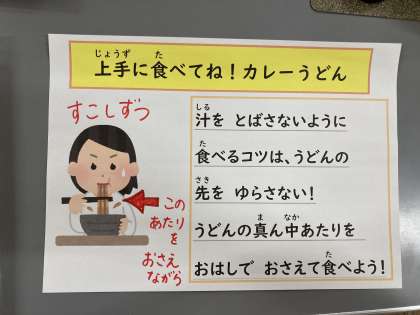 上手に食べてね！カレーうどん
じょうず
た
すこしずつ
この
あたり
を
おさえ
ながら
汁を とばさないように
しる
食べるコツは、うどんの
た
先を ゆらさない！
さき
うどんの真ん中あたりを
ま
なか
おはしで おさえて食べよう！
た